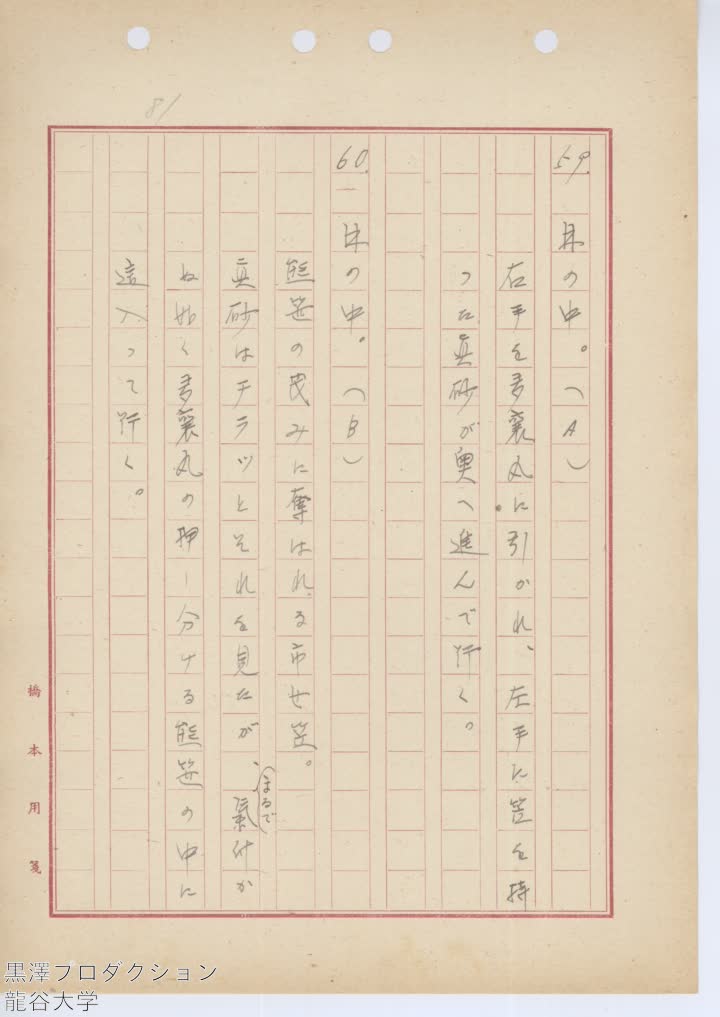 81
59. 林の中。(A)
右手を多襄丸に引かれ、左手に笠を持
つた真砂が奥へ進んで行く。
60. 林の中。(B)
熊笹の茂みに奪はれる市女笠。
真砂はチラッとそれを見たが、まるで氣付か
ぬ如く多襄丸の押し分ける熊笹の中に
這入って行く。
橋本用箋
黒澤プロダクション
龍谷大学